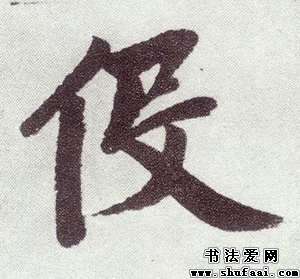 伇
书法爱网
www.shufaai.com